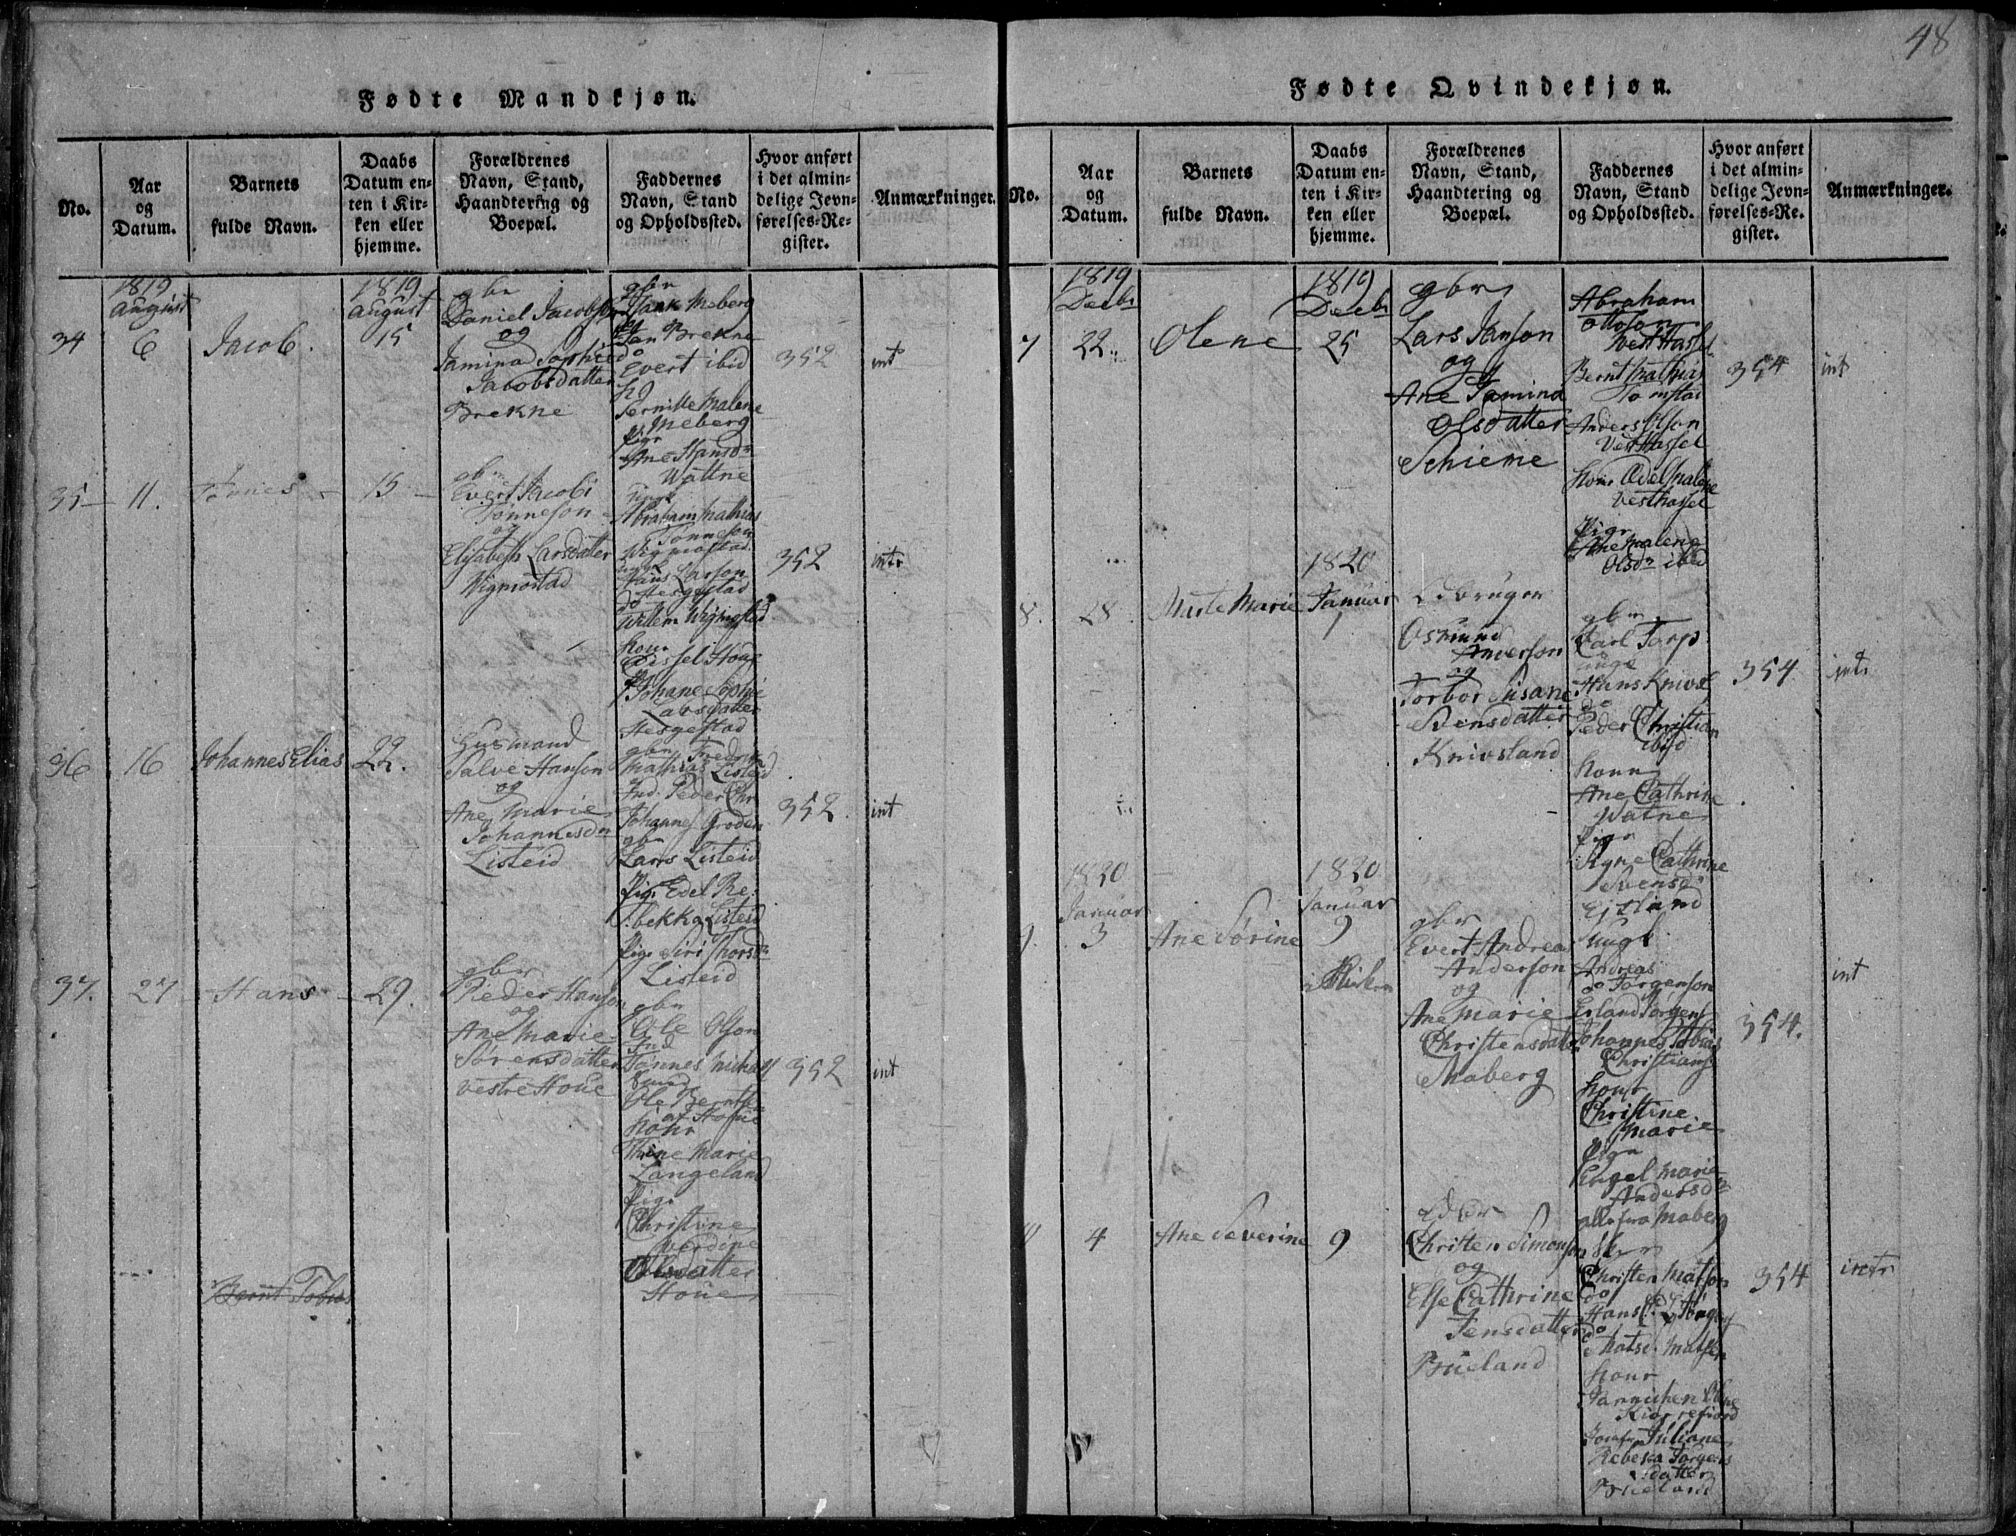 48
Fødte Mandkjøn.
No.
Aar
og
Datum.
Barnets
fulde Navn.
Daabs
Datum en-
ten i Kir-
ken eller
hjemme.
Forældrenes
Navn, Stand,
Haandtering og
Boepæl.
Faddernes
Navn, Stand
og Opholdssted.
Hvor anført
i det almin-
delige Jevn-
førelses-Re-
gister.
Anmærkninger.
34
1819
August
6
Jacob.
1819
August
15
gbr
Daniel Jacobson
og
Jamina Sophie
Jacobsdatter
Brekne
gbr
Isaak Meberg
Jan Brekne
do
Evert ibid
Pernille Malene
Meberg
Pigr
Ane Hansdr
Wattne
352
int
35
11.
Tønnes
15
gbr
Evert Jacobi
Tønneson
og
Elisabeth Larsdatter
Wigmostad
Abraham Mathias
Tønneson
Wigmostad
Hans Larson
do Hesgestad
Willem Wigmostad
kour
Sissel Houe
Johane Sophie
Larsdatter
Hesgestad
352
intr
36
16
Johannes Elias
22.
Husmand
Salve Hanson
og
Ane Marie
Johannesdr
Listeid
gbr
Mathias Listeid
Ind. Peder Chr
Johannes Groden
gbr
Lars Listeid
Pig. Edel Re-
bekka Listeid
Pige Siri Thorsdr
Listeid
352.
int
37.
27
Hans
29.
gbr
Peder Hanson
og
Ane Marie
Sørensdatter
vestre Houe
gbr
Ole Olson
Ind
Tønnes Michall
Ole Berntsen
af Houe
konr
Thrine Marie
Langeland
Pige
Christine
Verdine
Olsdatter
Houe
352
int
Bernt Tobias
Fødte Qvindekjøn.
No.
Aar
og
Datum.
Barnets
fulde Navn.
Daabs
Datum en-
ten i Kir-
ken eller
hjemme.
Forældrenes
Navn, Stand,
Haandtering og
Boepæl.
Faddernes
Navn, Stand
og Opholdssted.
Hvor anført
i det almin-
delige Jevn-
førelses-Re-
gister.
Anmærkninger.
7
1819
Decbr
22.
Olene
1819
Decbr
25
gbr
Lars Janson
og
Ane Jamina
Olsdatter
Schieme
Abraham
Ottoson
Vest Hassel
Bernt Mathias
Tomstad
Anders Olson
Vest Hassel
kone Edel Malene
Vesthassel
Pigr
Ane Malene
Olsdr ibid
354
int
8.
28
Marie
1820
Januar
1
Osmund
Anderson
og
Torbor Susane
Svensdatter
Knivsland
gbr
Carl Torp
unge
Hans Knivsl
do
Peder Christian
ibid
konr
Ane Cathrine
Watne
Pigr
Cathrine
Svensdr
Eitland
354
intr
9.
1820
Januar
3
Ane Sørine
1820
Januar
9
i Kirken
gbr
Evert Andrea
Anderson
og
Ane Marie
Christensdatter
Maberg
Ungk
Andreas
Torgerson
Erland Torgers
Johannes Tobias
Christians
konr
Christine
Marie
Pigr
Engel Marie
Andersdr
alle fra Maberg
354.
int
4
Ane Severine
9
Christen Simonson
og
Else Cathrine
Jensdatter
Brueland
Christen Matson
do
Hans
do
Mats Matson
konr
Jannichen
Juliane
Rebekka Torgers
datter
Brueland
354
intr